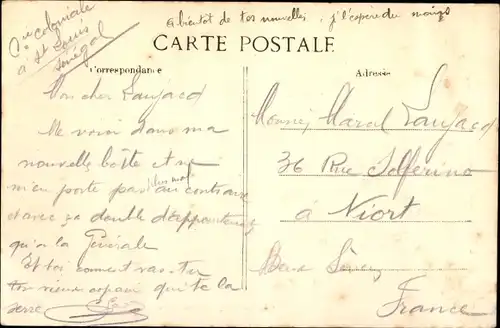 coloniale
à St Louis
Sénégal
a bientot de tes nouvelles, j'espère du moins
CARTE POSTALE
Correspondance
Adresse
Mon cher Laujacd
Me voici dans ma
nouvelle boîte et ne
m'en porte pas plus mal au contraire
et avec ça double d'appointements
qu'à la Générale
Et toi comment vas-tu
ton vieux copain qui te la
serre
Marcel Laujacd
36 Rue Solferino
à Niort
Deux Sèvres
France